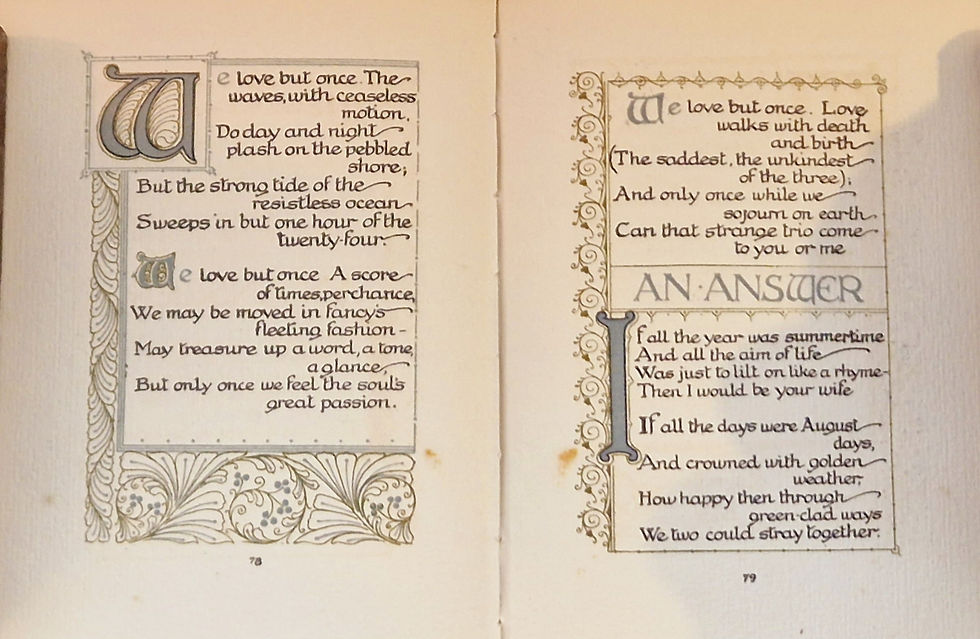 We love but once. The
waves, with ceaseless
motion,
Do day and night
plash on the pebbled
shore;
But the strong tide of the
resistless ocean
Sweeps in but one hour of the
twenty-four.
We love but once A score
of times, perchance,
We may be moved in fancy's
fleeting fashion-
May treasure up a word, a tone,
a glance,
But only once we feel the soul's
great passion.
78
We love but once. Love
walks with death
and birth
(The saddest, the unkindest
of the three);
And only once while we
sojourn on earth
Can that strange trio come
to you or me
AN·ANSWER
If all the year was summertime
And all the aim of life
Was just to lilt on like a rhyme-
Then I would be your wife
If all the days were August
days,
And crowned with golden
weather,
How happy then through
green-clad ways
We two could stray together.
79